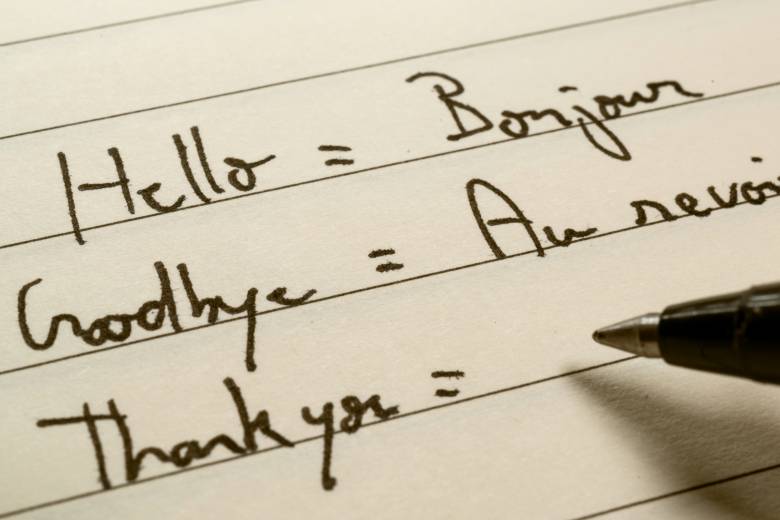 Hello = Bonjour
Goodbye = Au revoi
Thank you =